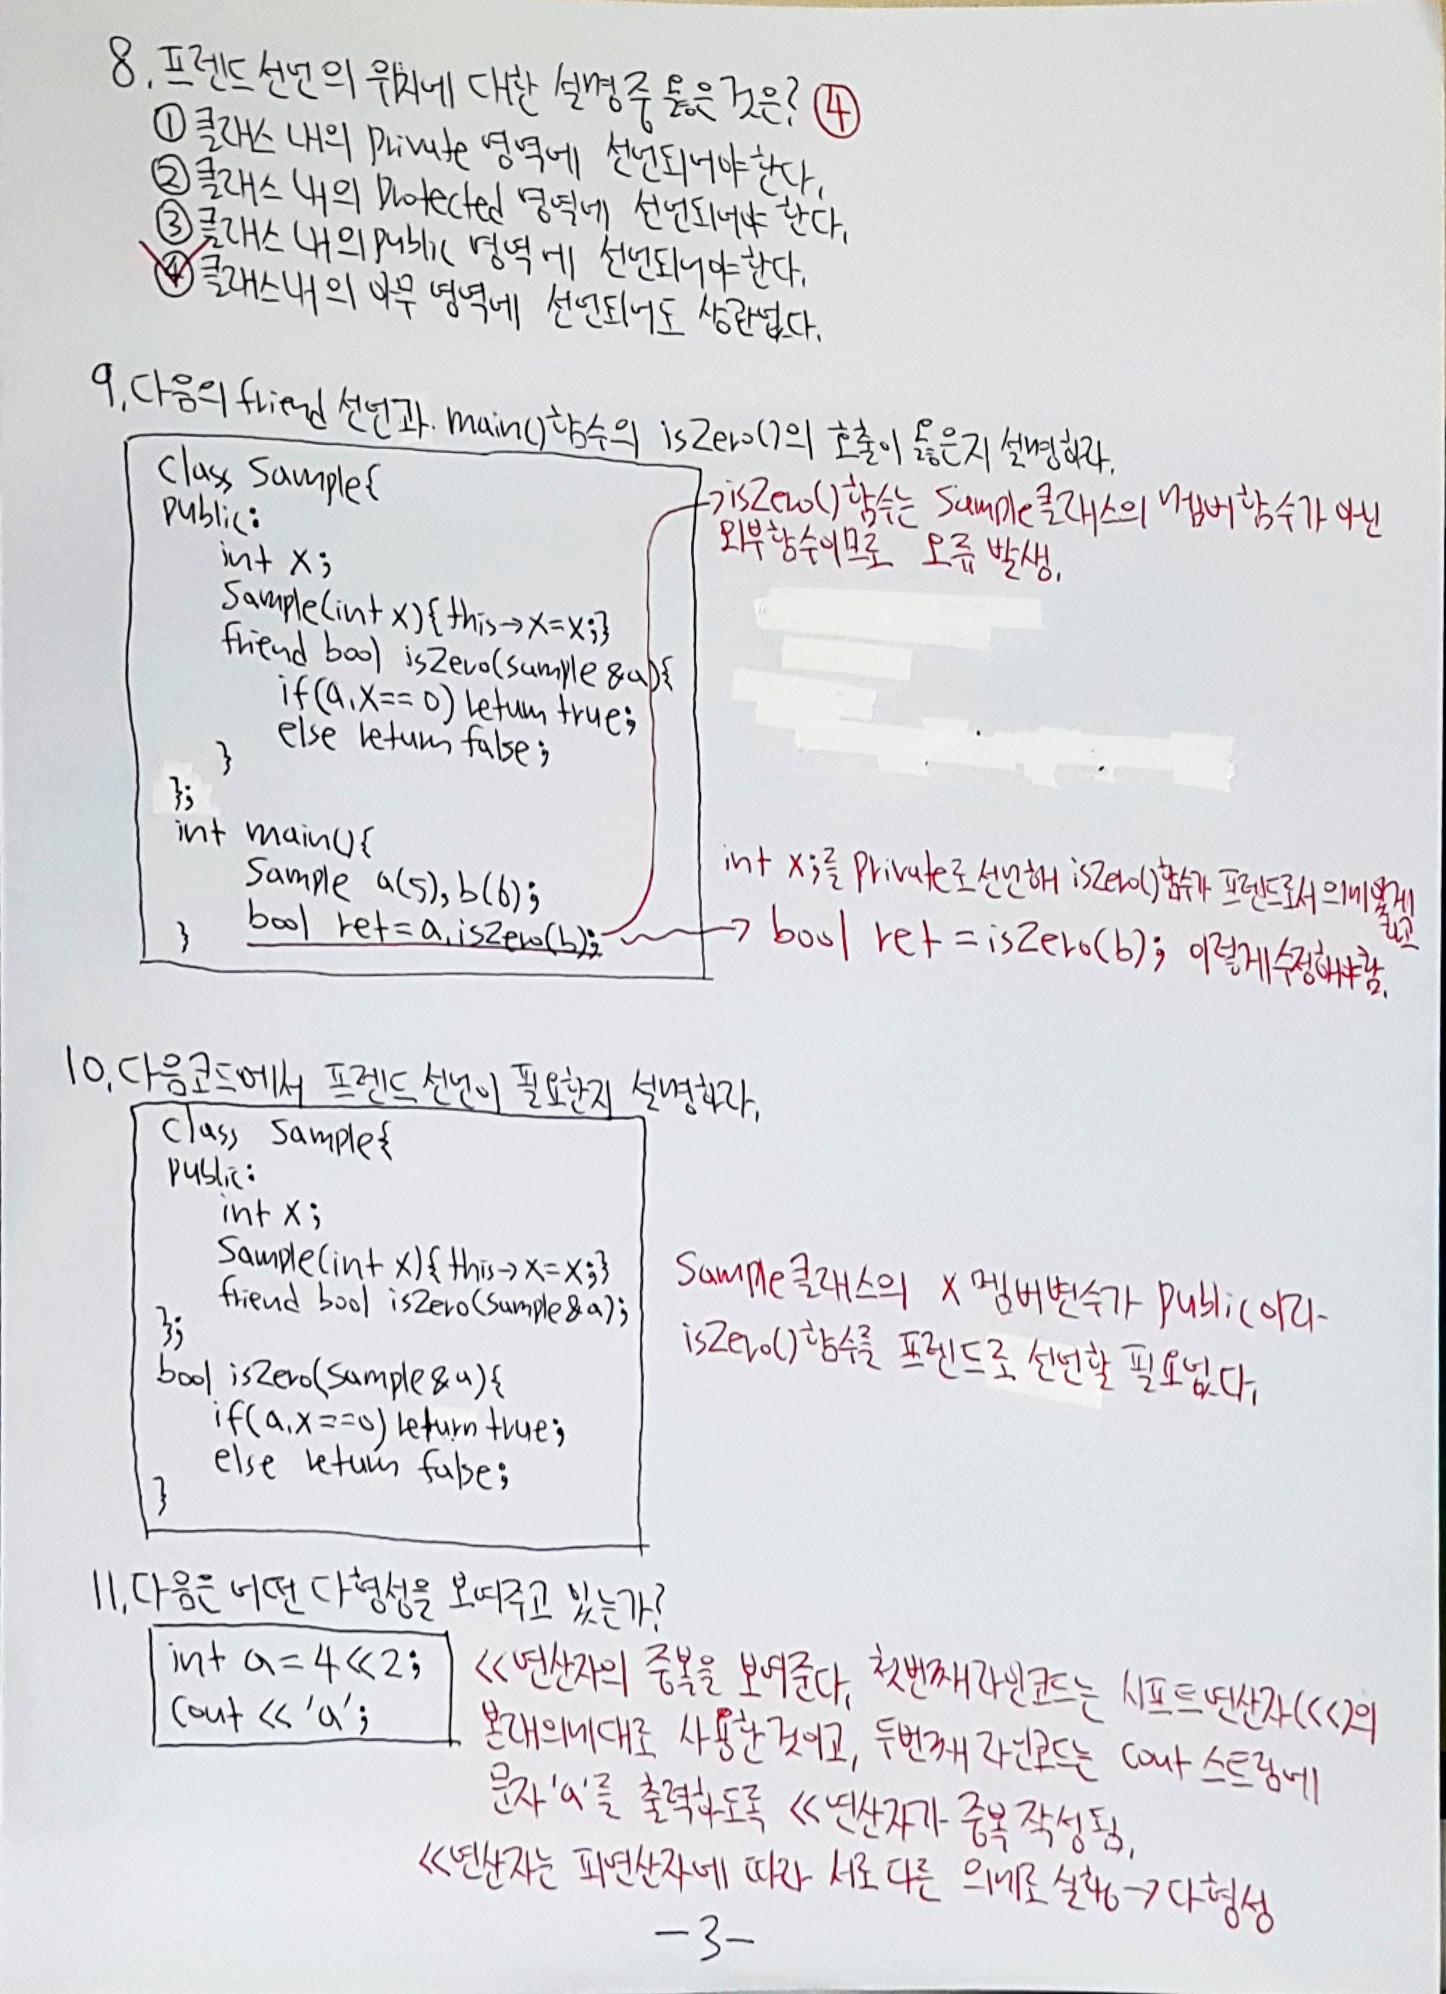 8. 프렌드 선언의 위치에 대한 설명 중 옳은 것은? ④
① 클래스 내의 private 영역에 선언되어야 한다.
② 클래스 내의 protected 영역에 선언되어야 한다.
③ 클래스 내의 public 영역에 선언되어야 한다.
④ 클래스 내의 아무 영역에 선언되어도 상관없다.
9. 다음의 friend 선언과 main() 함수의 isZero()의 호출이 옳은지 설명하라.
class Sample{
public:
int x;
Sample(int x){this→x=x;}
friend bool isZero(Sample &a){
if(a.x==0) return true;
else return false;
}
};
int main(){
Sample a(5), b(6);
bool ret=a.isZero(b);
}
→isZero() 함수는 Sample클래스의 멤버함수가 아닌
외부함수이므로 오류 발생.
int x;를 private로 선언해 isZero()함수가 프렌드로서 의미있게
하고
→ bool ret = isZero(b); 이렇게 수정해야함.
10. 다음코드에서 프렌드 선언이 필요한지 설명하라.
class Sample{
public:
int x;
Sample(int x){this→x=x;}
friend bool isZero(Sample &a);
};
bool isZero(Sample &a){
if(a.x==0) return true;
else return false;
}
Sample클래스의 x 멤버변수가 public이라
isZero()함수를 프렌드로 선언할 필요없다.
11. 다음은 어떤 다형성을 보여주고 있는가?
int a=4<<2;
cout << 'a';
<<연산자의 중복을 보여준다. 첫번째 라인코드는 시프트연산자(<<)의
본래의미대로 사용한 것이고, 두번째 라인코드는 cout 스트림에
문자 'a'를 출력하도록 <<연산자가 중복 작성됨.
<<연산자는 피연산자에 따라 서로 다른 의미로 실행→다형성
-3-